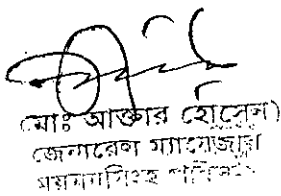 (মোঃ আক্তার হোসেন)
জেনারেল ম্যানেজার
ময়মনসিংহ